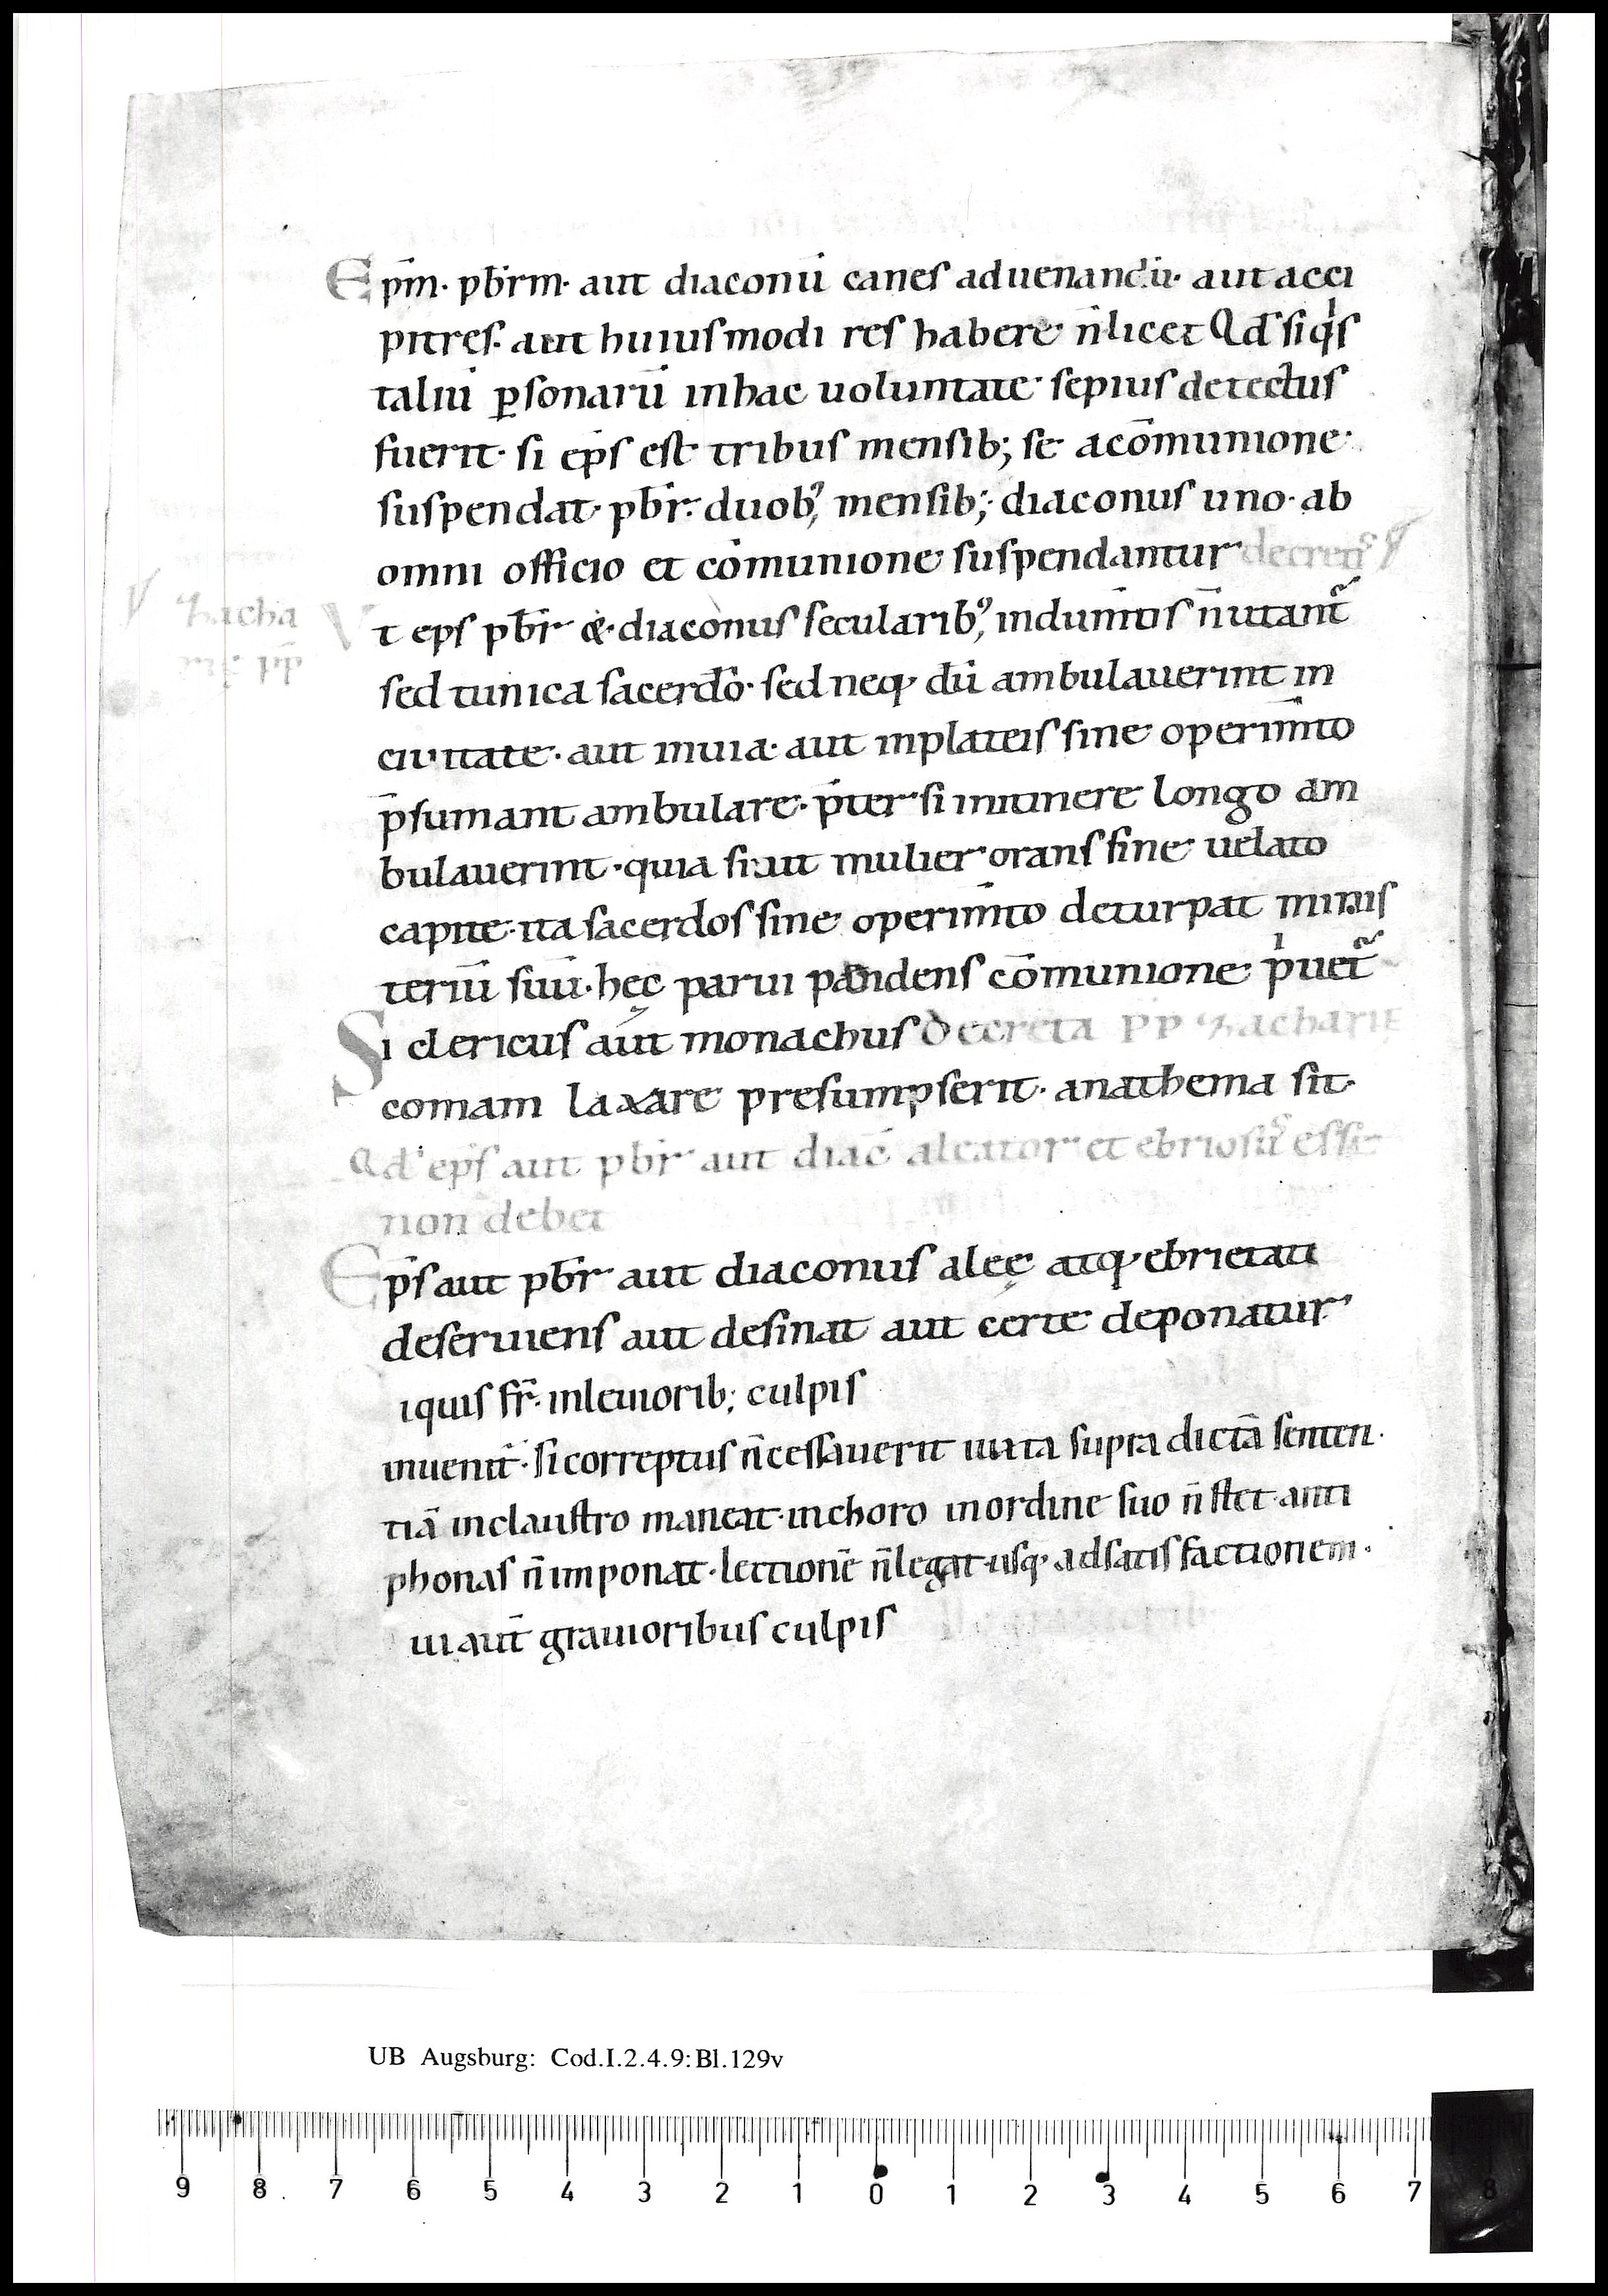 Ep̄m· pb̄rm· aut diaconū canes aduenandū· aut acci
pitres· aut huiusmodi res habere n̄ licet Qd̄ siqͥs
taliū ꝑsonarū inhac uoluntate· sepius detectus
fuerit· si ep̄s est tribus mensib; se acōmunione·
suspendat· pb̄r· duob; mensib; diaconus uno· ab
omni officio et cōmunione suspendantur decret
Zacha
rię pp̄
Vt ep̄s pb̄r & diaconus secularib; indum̄tis n̄ utant̃
sed tunica sacerdō· sed neq; dū ambulauerint in
ciuitate· aut inuia· aut inplateis sine operim̄to
p̄sumant ambulare· p̄ter si initinere longo am
bulauerint· quia sicut mulier orans sine uelato
capite· ita sacerdos sine operim̄to deturpat minis
teriū suū· hęc parui pandens cōmunione pͥuet̃
Si clericus aūt monachus Decreta pp Zacharię
comam laxare presumpserit· anathema sit·
Qd ep̄s aut pb̄r aut diac̄ aleator et ebriosus esse
non debet
Ep̄s aut pb̄r aut diaconus aleę atq; ebrietati
deseruiens aut desinat aut certe deponatur·
iquis fr̄· inleuiorib; culpis
inuenit̃· si correptus n̄ cessauerit iuxta supra dictā senten·
tiā inclaustro maneat· inchoro inordine suo n̄ stet· anti
phonas n̄ imponat· lectionē n̄ legat· usq; adsatisfactionem·
ui aut̄ grauioribus culpis
UB Augsburg: Cod.I.2.4.9:Bl.129v
9 8 7 6 5 4 3 2 1 0 1 2 3 4 5 6 7 8